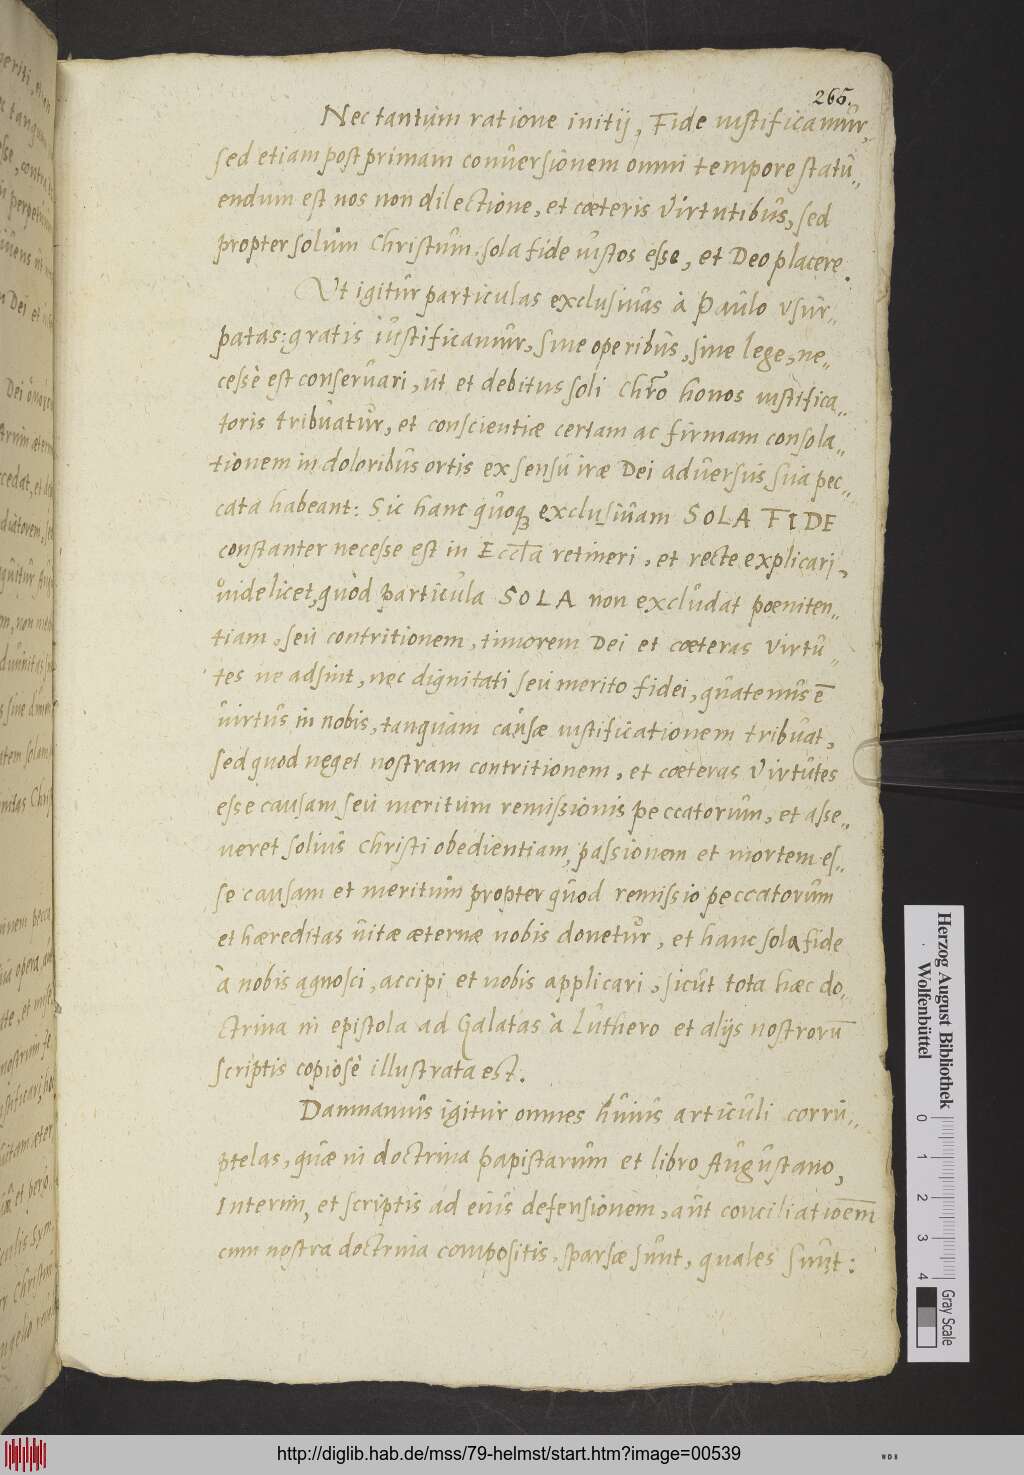 265.
Nec tantum ratione initij, Fide iustificamur,
sed etiam post primam conversionem omni tempore statu„
endum est nos non dilectione, et cæteris Virtutibus, sed
propter solum Christum, sola fide iustos esse, et Deo placere.
Ut igitur particulas exclusivas à Paulo usur„
patas: gratis iustificamur, sine operibus, sine lege, ne„
cessè est conservari, ut et debitus soli Chro honos iustifica„
toris tribuatur, et conscientiæ certam ac firmam consola„
tionem in doloribus ortis ex sensu iræ Dei adversus sua pec„
cata habeant: Sic hanc quoq exclusivam SOLA FIDE
constanter necesse est in Eccla retineri, et recte explicari,
videlicet, quòd particula SOLA non excludat poeniten„
tiam, seu contritionem, timorem Dei et cæteras virtu„
tes ne adsint, nec dignitati seu merito fidei, quatenus ē
virtus in nobis, tanquam causæ iustificationem tribuat,
sed quod neget nostram contritionem, et cæteras Virtutes
esse causam seu meritum remissionis peccatorum, et asse„
veret solius Christi obedientiam, passionem et mortem es„
se causam et meritum propter quod remissio peccatorum
et hæreditas vitæ æternæ nobis donetur, et hanc sola fide
à nobis agnosci, accipi et nobis applicari, sicut tota hæc do„
ctrina in epistola ad Galatas à Luthero et alijs nostrorū
scriptis copiosè illustrata est.
Damnamus igitur omnes huius articuli corru„
ptelas, quæ in doctrina papistarum et libro Augustano,
Interim, et scriptis ad eius defensionem, aut conciliatioem
cum nostra doctrina compositis, sparsæ sunt, quales sunt:
Herzog August Bibliothek
Wolfenbüttel
0 1 2 3 4
Gray Scale
http://diglib.hab.de/mss/79-helmst/start.htm?image=00539